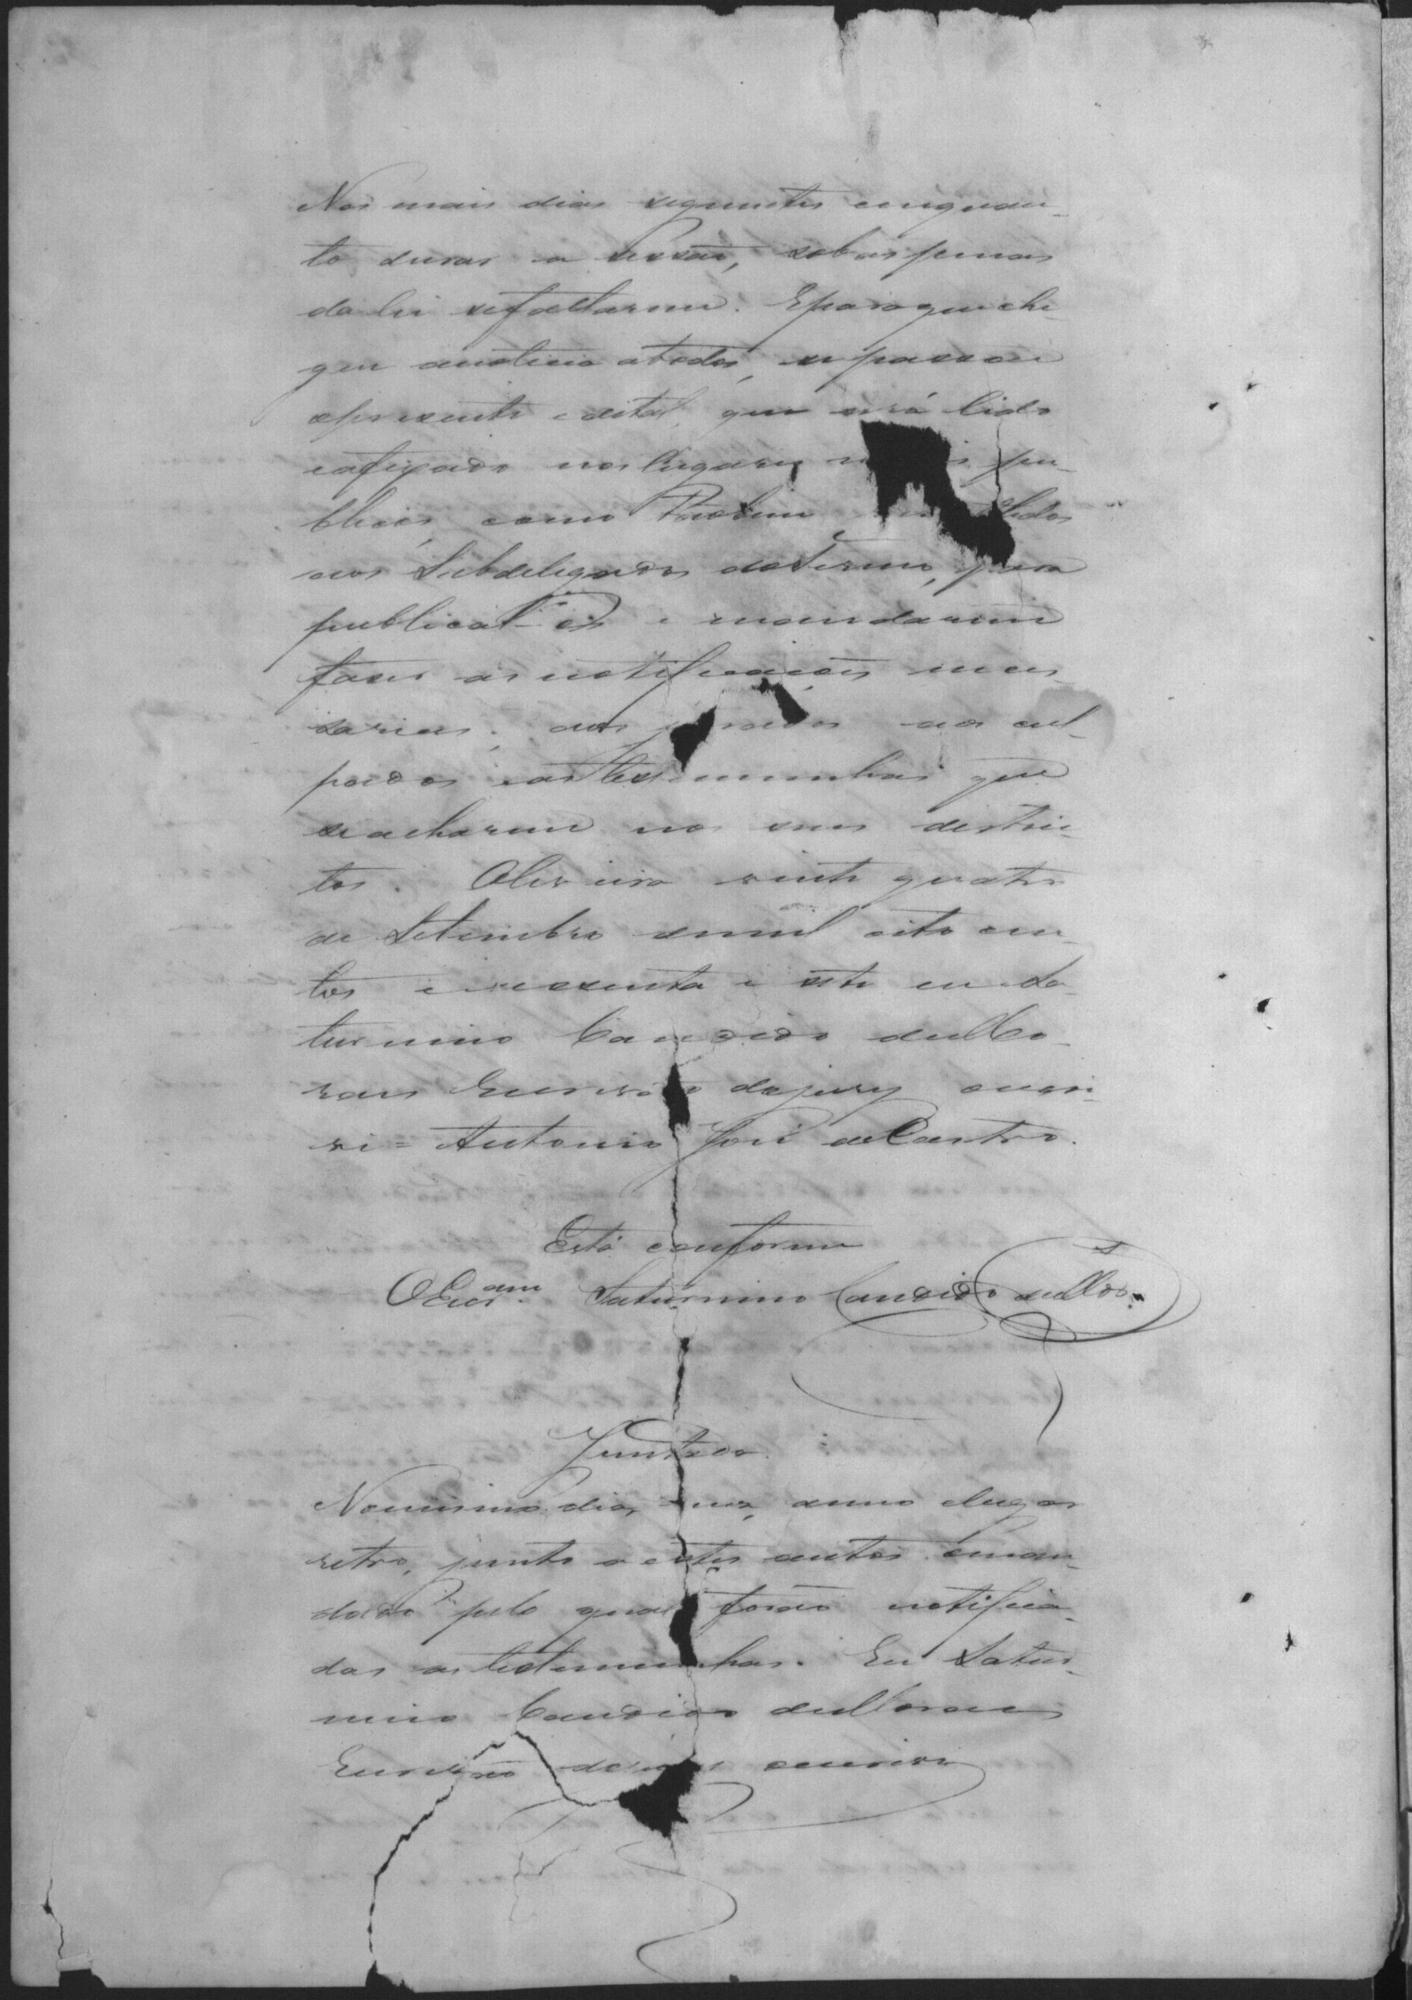 Nos mais dias seguintes emquan-
to durar a sessão, sob as penas
da lei se faltarem. E para que che-
gue a noticia a todos, se passou
o presente edital, que será lido
e afixado nos lugares pu-
blicos, como
aos Subdelegados do Termo, para
publical-os e mandarem
fazer as notificações neces-
sarias, aos jurados aos cul-
pados e as testemunhas que
se acharem nos seus distric-
tos. Oliveira vinte quatro
de Setembro de mil oito cen-
tos e sessenta e sete eu Sa-
turnino Candido de Mo-
raes Escrivão do jury escre-
vi = Antonio José de Castro.
Está conforme
O Escr.am Saturnino Candido de Mor.
Juntada
No mesmo dia, mez, anno e lugar
retro, junto a estes autos o man-
dado pelo qual forão notifica-
das as testemunhas. Eu Satur-
nino Candido de Moraes
Escrivão do jury escrevi